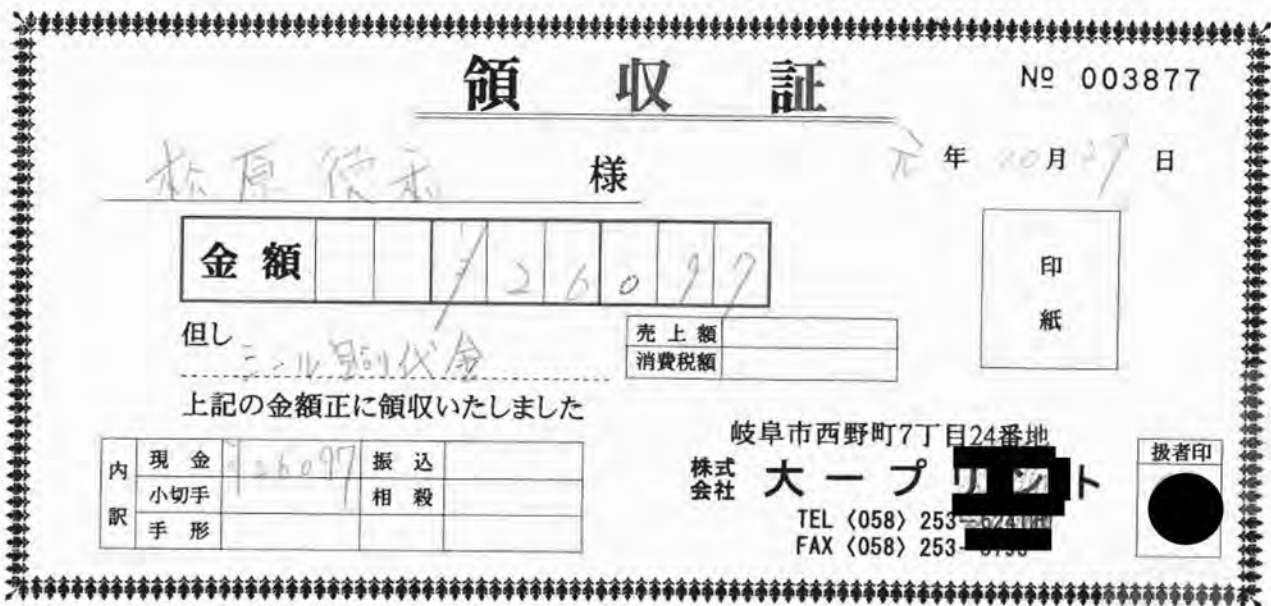 領収証
№ 003877
松原徳和 様
元年 10月27日
金額 ¥26097
印紙
但し シール印刷代金
売上額
消費税額
上記の金額正に領収いたしました
内訳
現金 ¥26097 振込
小切手 相殺
手形
岐阜市西野町7丁目24番地
株式会社 大一プリント
TEL〈058〉253-
FAX〈058〉253-
扱者印